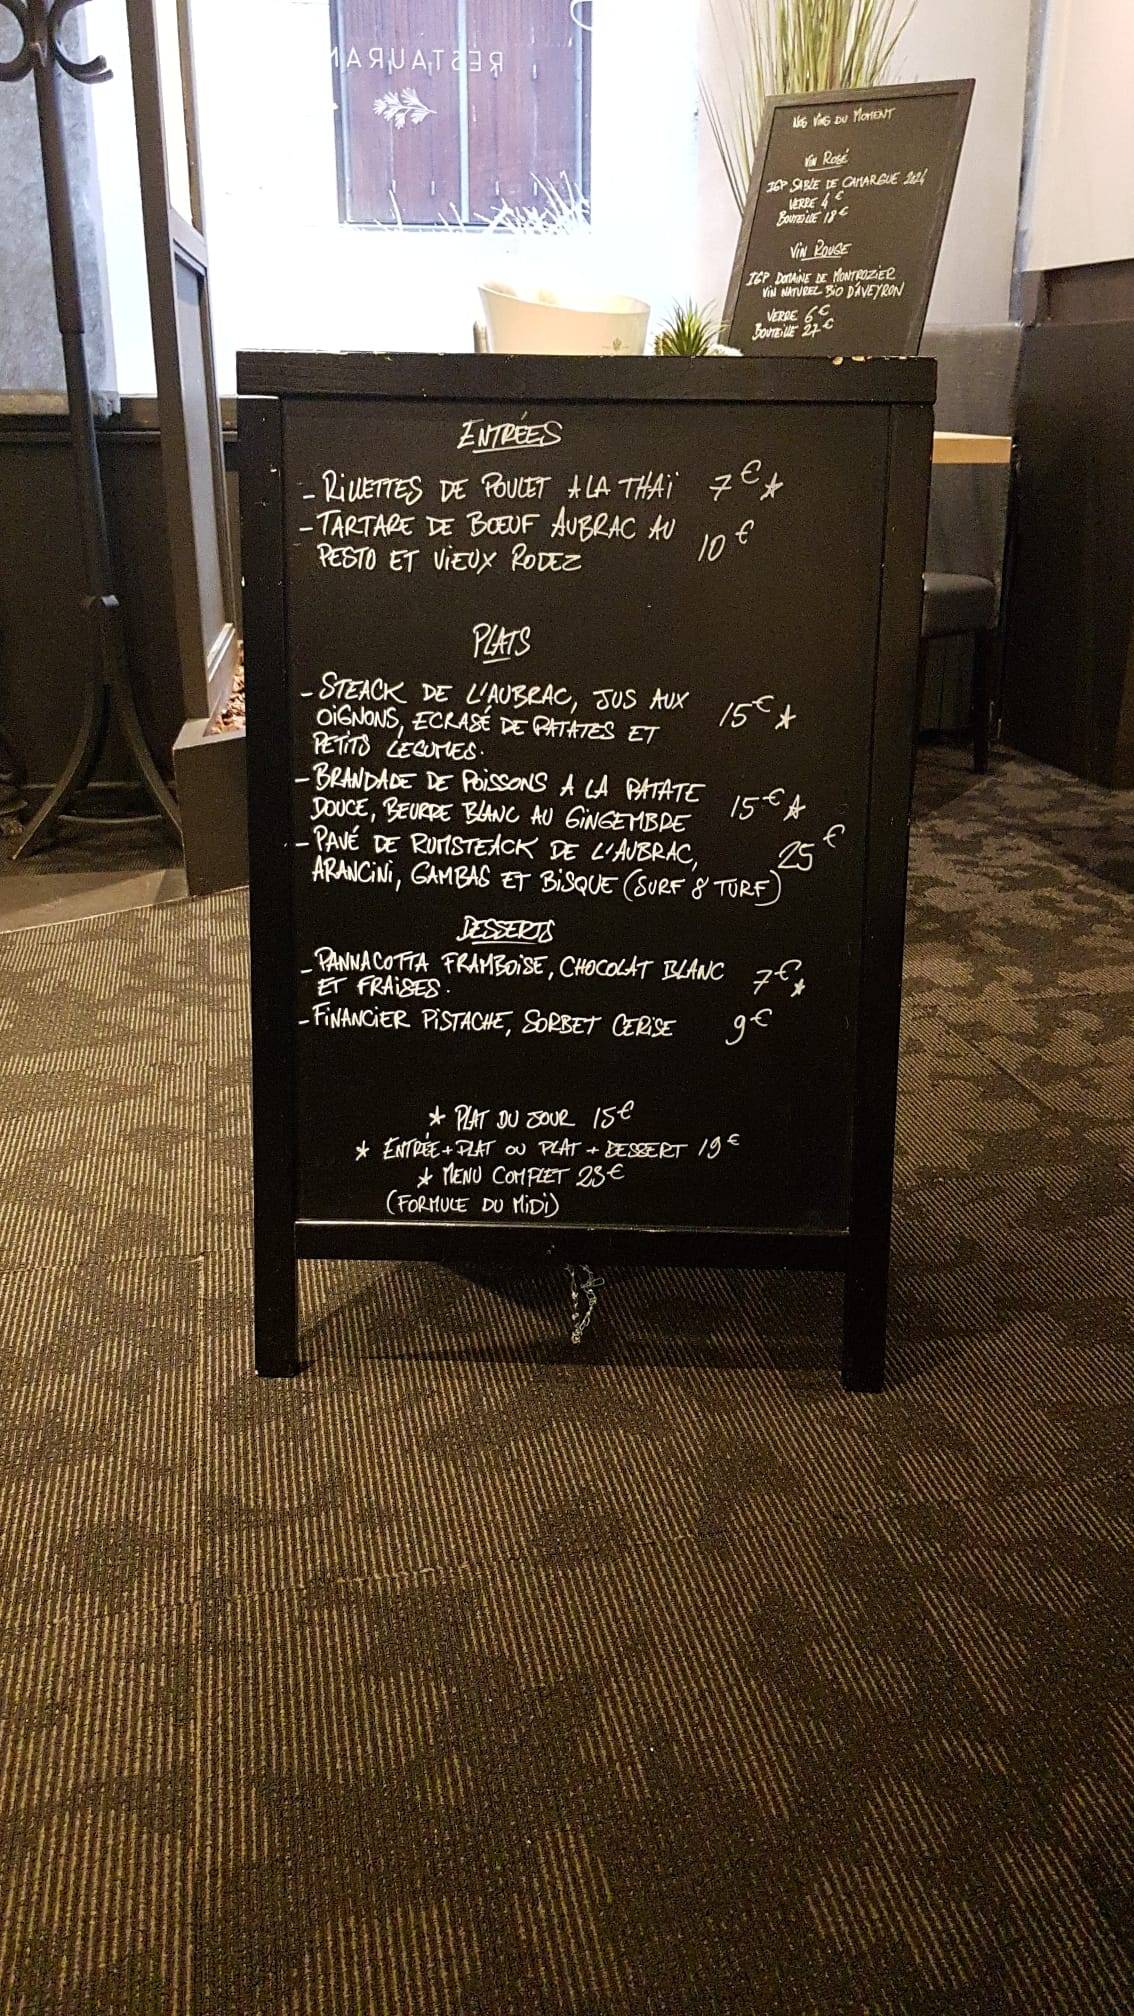 RESTAURAN
NOS VINS DU MOMENT
VIN ROSÉ
IGP SABLE DE CAMARGUE 2024
VERRE 4€
BOUTEILLE 18€
VIN ROUGE
IGP DOMAINE DE MONTROZIER
VIN NATUREL BIO D'AVEYRON
VERRE 6€
BOUTEILLE 27€
ENTRÉES
- RILLETTES DE POULET A LA THAÏ 7€ ★
- TARTARE DE BŒUF AUBRAC AU
PESTO ET VIEUX RODEZ 10€
PLATS
- STEACK DE L'AUBRAC, JUS AUX
OIGNONS, ECRASÉ DE PATATES ET 15€ ★
PETITS LEGUMES.
- BRANDADE DE POISSONS A LA PATATE
DOUCE, BEURRE BLANC AU GINGEMBRE 15€ ★
- PAVÉ DE RUMSTEACK DE L'AUBRAC, 25€
ARANCINI, GAMBAS ET BISQUE (SURF & TURF)
DESSERTS
- PANNACOTTA FRAMBOISE, CHOCOLAT BLANC 7€ ★
ET FRAISES.
- FINANCIER PISTACHE, SORBET CERISE 9€
★ PLAT DU JOUR 15€
★ ENTRÉE + PLAT OU PLAT + DESSERT 19€
★ MENU COMPLET 23€
(FORMULE DU MIDI)